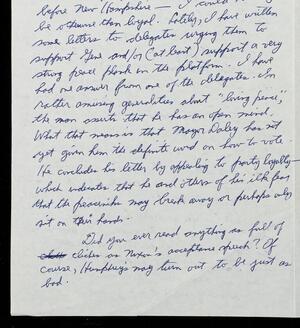 before New Hampshire — I could not
be otherwise than loyal. Lately, I have written
some letters to delegates urging them to
support Gene and/or (at last) support a very
strong peace plank on the platform. I have
had one answer from one of the delegates. In
rather amusing generalities about "living peace",
the man asserts that he has an open mind.
What that means is that Mayor Daley has not
yet given him the definite word on how to vote.
He concludes his letter by appealing to party loyalty—
which indicates that he and others of his ilk fear
that the peaceniks may break away or perhaps only
sit on their hands.
Did you ever read anything as full of
cliches as Nixon's acceptance speech? Of
course, Humphrey's may turn out to be just as
bad.